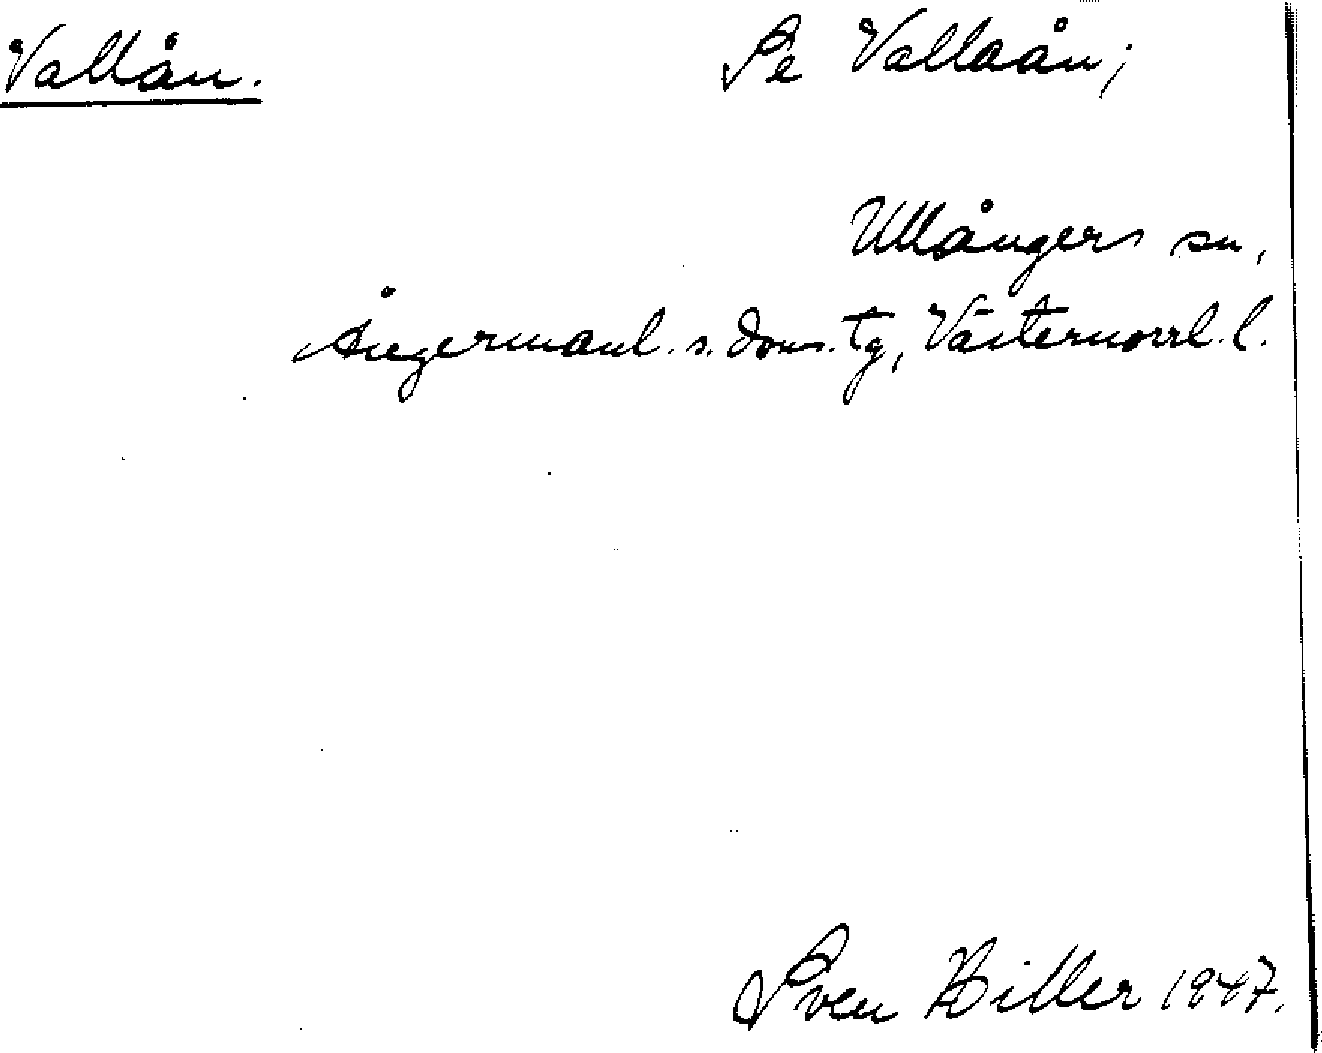 Vallån. Se Vallaån;
Ullångers sn,
Ångermanl. s. doms. tg, Västernorrl. l.
Sven Hiller 1947.